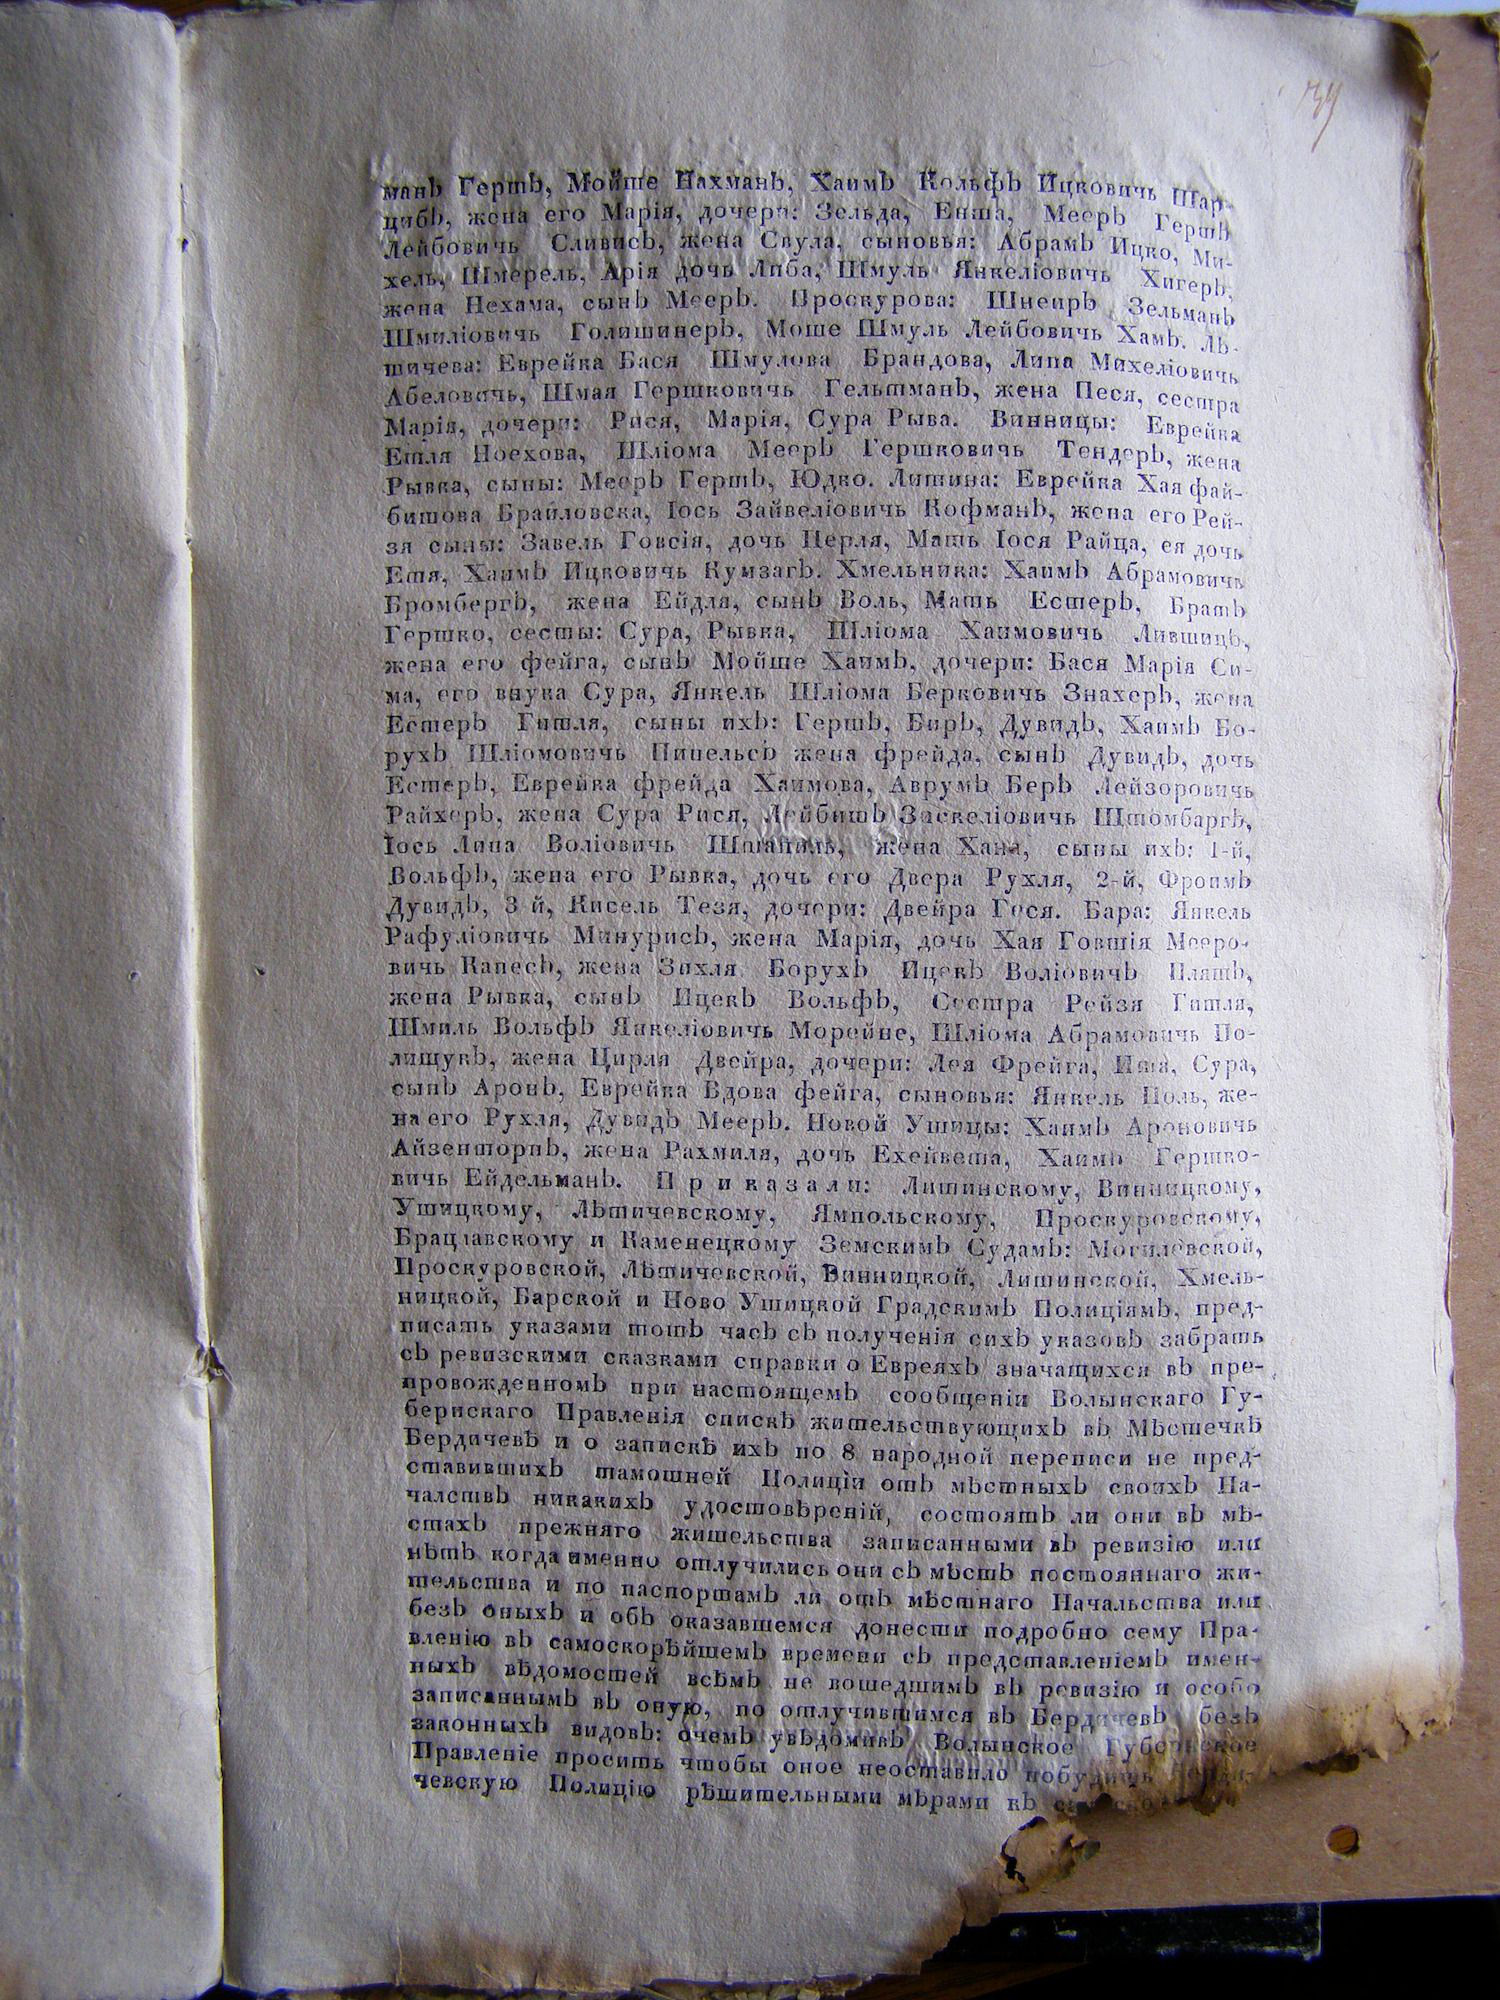 34
манъ Гершъ, Мойше Нахманъ, Хаимъ Кольфъ Ицковичь Шар-
цибъ, жена его Марія, дочери: Зельда, Енша, Мееръ Гершъ
Лейбовичь Сливисъ, жена Свула, сыновья: Абрамъ Ицко, Ми-
хель, Шмерель, Арія дочь Либа, Шмуль Янкеліовичь Хигеръ,
жена Нехама, сынъ Мееръ. Проскурова: Шнеиръ Зельманъ
Шмиліовичь Голишинеръ, Моше Шмуль Лейбовичь Хамъ. Лѣ-
тичева: Еврейка Бася Шмулова Брандова, Липа Михеліовичь
Абеловичь, Шмая Гершковичь Гельтманъ, жена Песя, сестра
Марія, дочери: Рися, Марія, Сура Рыва. Винницы: Еврейка
Етля Ноехова, Шліома Мееръ Гершковичь Тендеръ, жена
Рывка, сыны: Мееръ Гершъ, Юдко. Литина: Еврейка Хая фай-
бишова Браиловска, Іось Зайвеліовичь Кофманъ, жена его Рей-
зя сыны: Завель Говсія, дочь Перля, Мать Іося Райца, ея дочь
Етя, Хаимъ Ицковичь Кумзагъ. Хмельника: Хаимъ Абрамовичь
Бромбергъ, жена Ейдля, сынъ Воль, Мать Естеръ, Братъ
Гершко, сесты: Сура, Рывка, Шліома Хаимовичь Лившицъ,
жена его фейга, сынъ Мойше Хаимъ, дочери: Бася Марія Си-
ма, его внука Сура, Янкель Шліома Берковичь Знахеръ, жена
Естеръ Гитля, сыны ихъ: Гершъ, Биръ, Дувидъ, Хаимъ Бо-
рухъ Шліомовичь Пипельсъ жена фрейда, сынъ Дувидъ, дочь
Естеръ, Еврейка фрейда Хаимова, Аврумъ Беръ Лейзоровичь
Райхеръ, жена Сура Рися, Лейбишъ Заскеліовичь Штомбаргъ,
Іось Липа Воліовичь жена Хана, сыны ихъ: 1-й,
Вольфъ, жена его Рывка, дочь его Двера Рухля, 2-й, Фроимъ
Дувидъ, 3 й, Кисель Тезя, дочери: Двейра Геся. Бара: Янкель
Рафуліовичь Минурисъ, жена Марія, дочь Хая Говшія Мееро-
вичь Капесъ, жена Зихля Борухъ Ицекъ Воліовичъ Плятъ,
жена Рывка, сынъ Ицекъ Вольфъ, Сестра Рейзя Гитля,
Шмиль Вольфъ Янкеліовичь Морейне, Шліома Абрамовичь По-
лищукъ, жена Цирля Двейра, дочери: Лея Фрейга, Ита, Сура,
сынъ Аронъ, Еврейка Вдова фейга, сыновья: Янкель Поль, же-
на его Рухля, Дувидъ Мееръ. Новой Ушицы: Хаимъ Ароновичь
Айзенторпъ, жена Рахмиля, дочь Ехейвета, Хаимъ Гершко-
вичь Ейдельманъ. Приказали: Литинскому, Винницкому,
Ушицкому, Лѣтичевскому, Ямпольскому, Проскуровскому,
Брацлавскому и Каменецкому Земскимъ Судамъ: Могилевской,
Проскуровской, Лѣтичевской, Винницкой, Литинской, Хмель-
ницкой, Барской и Ново Ушицкой Градскимъ Полиціямъ, пред-
писать указами тотъ часъ съ полученія сихъ указовъ забрать
съ ревизскими сказками справки о Евреяхъ значащихся въ пре-
провожденномъ при настоящемъ сообщеніи Волынскаго Гу-
бернскаго Правленія спискѣ жительствующихъ въ Мѣстечкѣ
Бердичевѣ и о запискѣ ихъ по 8 народной переписи не пред-
ставившихъ тамошней Полиціи отъ мѣстныхъ своихъ На-
чалствъ никакихъ удостовѣреній, состоятъ ли они въ мѣ-
стахъ прежняго жительства записанными въ ревизію или
нѣтъ когда именно отлучились они съ мѣстъ постояннаго жи-
тельства и по паспортамъ ли отъ мѣстнаго Начальства или
безъ оныхъ и объ оказавшемся донести подробно сему Пра-
вленію въ самоскорѣйшемъ времени съ представленіемъ имен-
ныхъ вѣдомостей всѣмъ не вошедшимъ въ ревизію и особо
записаннымъ въ оную, по отлучившимся въ Бердичевъ безъ
законныхъ видовъ: очемъ увѣдомивъ Волынское Губернское
Правленіе просить чтобы оное неоставило побудить Берди-
чевскую Полицію рѣшительными мѣрами къ